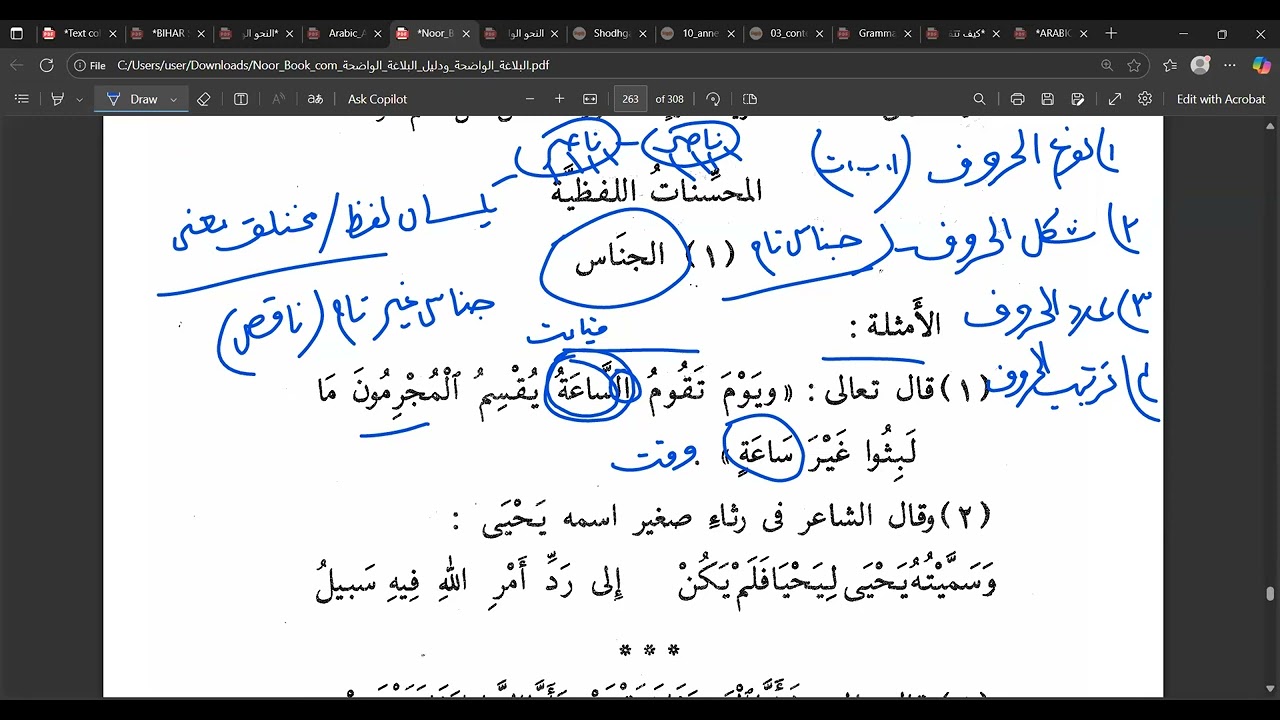 *Text col
*BIHAR
*النحو الو
Arabic_A
*Noor_B
النحو الوا
Shodhga
10_anne
03_conte
Gramma
*كيف تتق
*ARABIC
File C:/Users/user/Downloads/Noor_Book_com_البلاغة_الواضحة_ودليل_البلاغة_الواضحة.pdf
Draw
Ask Copilot
263 of 308
Edit with Acrobat
١) نوع الحروف (ا، ب، ت)
ناصر - ناصر
المحسِّناتُ اللفظيَّة
یکساں لفظ / مختلف معنی
٢) شكل الحروف
جناس تام
(١) الجنَاس
٣) عدد الحروف
جناس غير تام (ناقص)
الأَمثلة :
قیامت
٤) ترتيب الحروف
(١) قال تعالى : «ويَوْمَ تَقُومُ السَّاعَةُ يُقْسِمُ ٱلْمُجْرِمُونَ مَا
لَبِثُوا غَيْرَ سَاعَةٍ» .
وقت
(٢) وقال الشاعر فى رثاءِ صغير اسمه يَحْيَى :
وَسَمَّيْتُهُ يَحْيَى لِيَحْيَا فَلَمْ يَكُنْ إِلى رَدِّ أَمْرِ اللهِ فِيهِ سَبيلُ
* * *